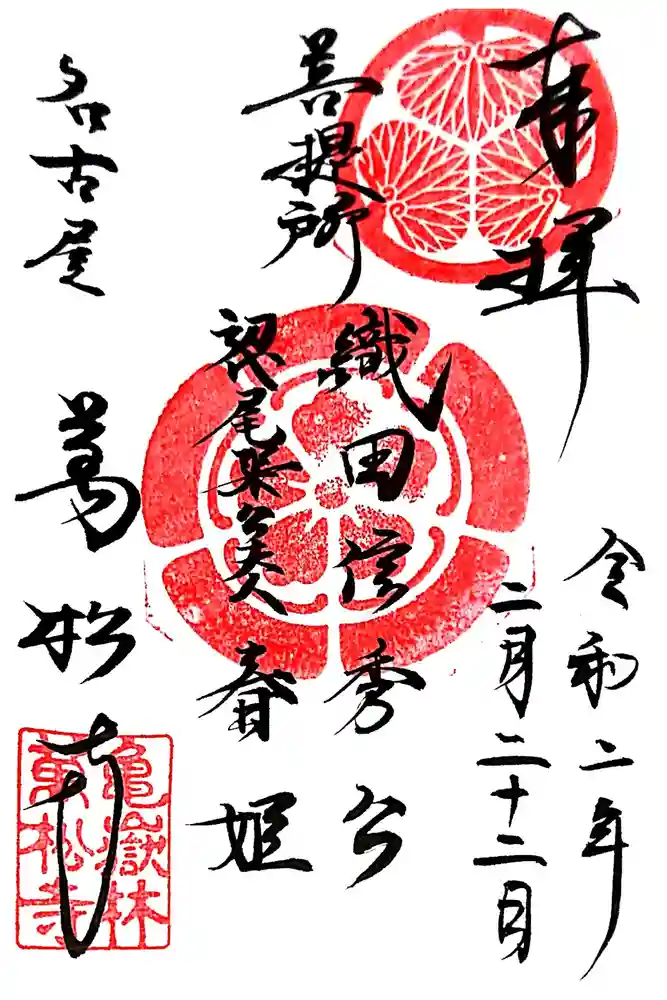 奉拝
令和二年
二月二十二日
菩提所
織田信秀公
尾張公夫人 春姫
名古屋
萬松寺
亀嶽林
萬松寺